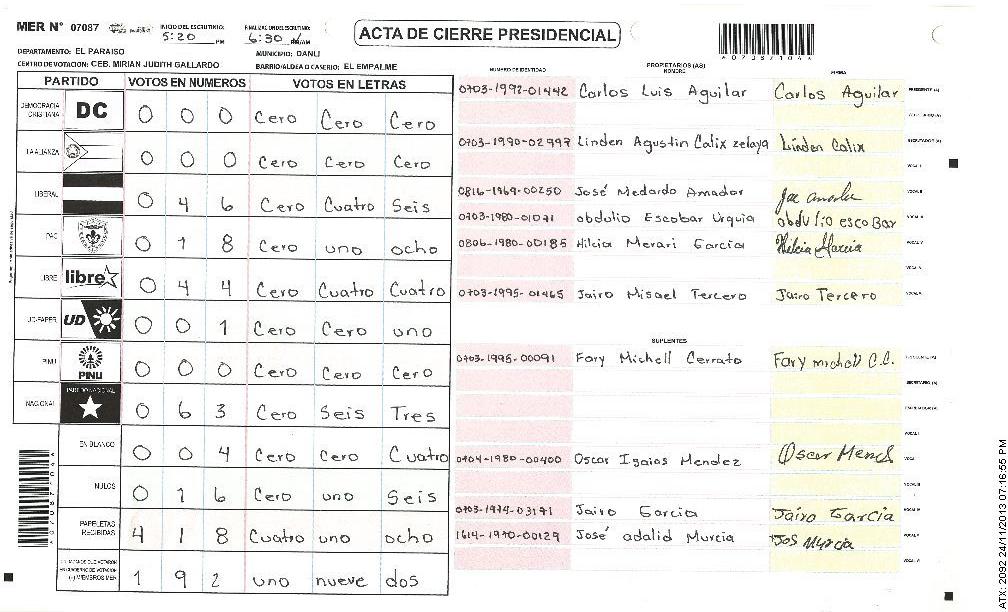 MER N° 07087 INICIO DEL ESCRUTINIO: FINALIZACION DEL ESCRUTINIO:
5:20 PM 6:30 PM/AM
ACTA DE CIERRE PRESIDENCIAL
*07087104*
DEPARTAMENTO: EL PARAISO MUNICIPIO: DANLI
CENTRO DE VOTACION: CEB. MIRIAN JUDITH GALLARDO BARRIO/ALDEA O CASERIO: EL EMPALME
PARTIDO VOTOS EN NUMEROS VOTOS EN LETRAS
DEMOCRACIA CRISTIANA DC 0 0 0 Cero Cero Cero
LA ALIANZA 0 0 0 Cero Cero Cero
LIBERAL 0 4 6 Cero Cuatro Seis
PAC 0 1 8 Cero uno ocho
LIBRE libre 0 4 4 Cero Cuatro Cuatro
UD-FAPER UD 0 0 1 Cero Cero uno
PINU PINU 0 0 0 Cero Cero Cero
NACIONAL PARTIDO NACIONAL 0 6 3 Cero Seis Tres
EN BLANCO 0 0 4 Cero Cero Cuatro
NULOS 0 1 6 Cero uno Seis
PAPELETAS RECIBIDAS 4 1 8 Cuatro uno ocho
1 9 2 uno nueve dos
NUMERO DE IDENTIDAD PROPIETARIOS (AS) NOMBRE FIRMA
0703-1992-01442 Carlos Luis Aguilar Carlos Aguilar PRESIDENTE (A)
0703-1990-02997 Linden Agustin Calix zelaya Linden Calix
0816-1969-00250 José Medardo Amador
0703-1980-01091 abdulio Escobar Urquia obdulio escoBar
0806-1980-00185 Hilcia Merari Garcia Hilcia Garcia
0703-1995-01465 Jairo Misael Tercero Jairo Tercero
SUPLENTES
0703-1995-00091 Fary Michell Cerrato Fary michell C.C.
0704-1980-00400 Oscar Igaios Mendez Oscar Mend
0703-1974-03191 Jairo Garcia Jairo García
1614-1970-00129 José adalid Murcia Jos Murcia
ATX: 2092 24/11/2013 07:16:55 PM